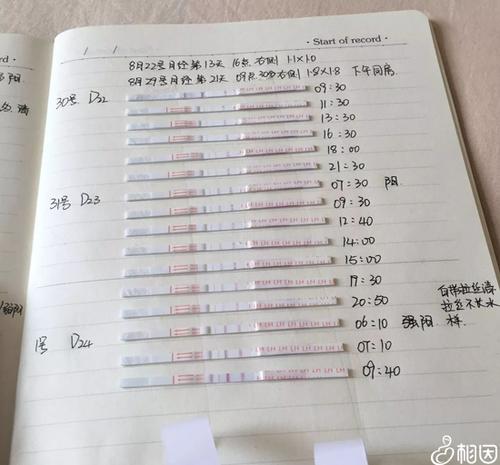 Start of record
8月22号月经第13天 16点 右侧 1.1×1.0
8月29号月经第21天 09点30分右侧 1.8×1.8 下午同房
30号 D22 09:30
11:30
13:30
16:30
18:00
21:30
31号 D23 07:30 阴
09:30
12:40
14:00
15:00
19:30
20:50 白带拉丝
拉丝不长水
06:10 强阳 样.
1号 D24 07:10
09:40
相因